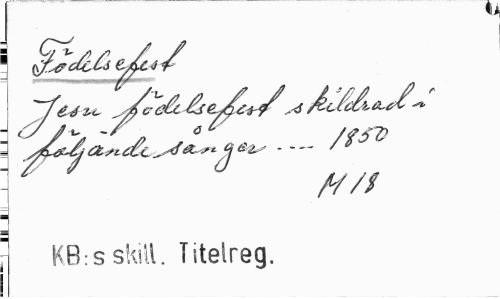 Födelsefest
Jesu födelsefest skildrad i
följande sånger .... 1850
M 18
KB:s skill. Titelreg.